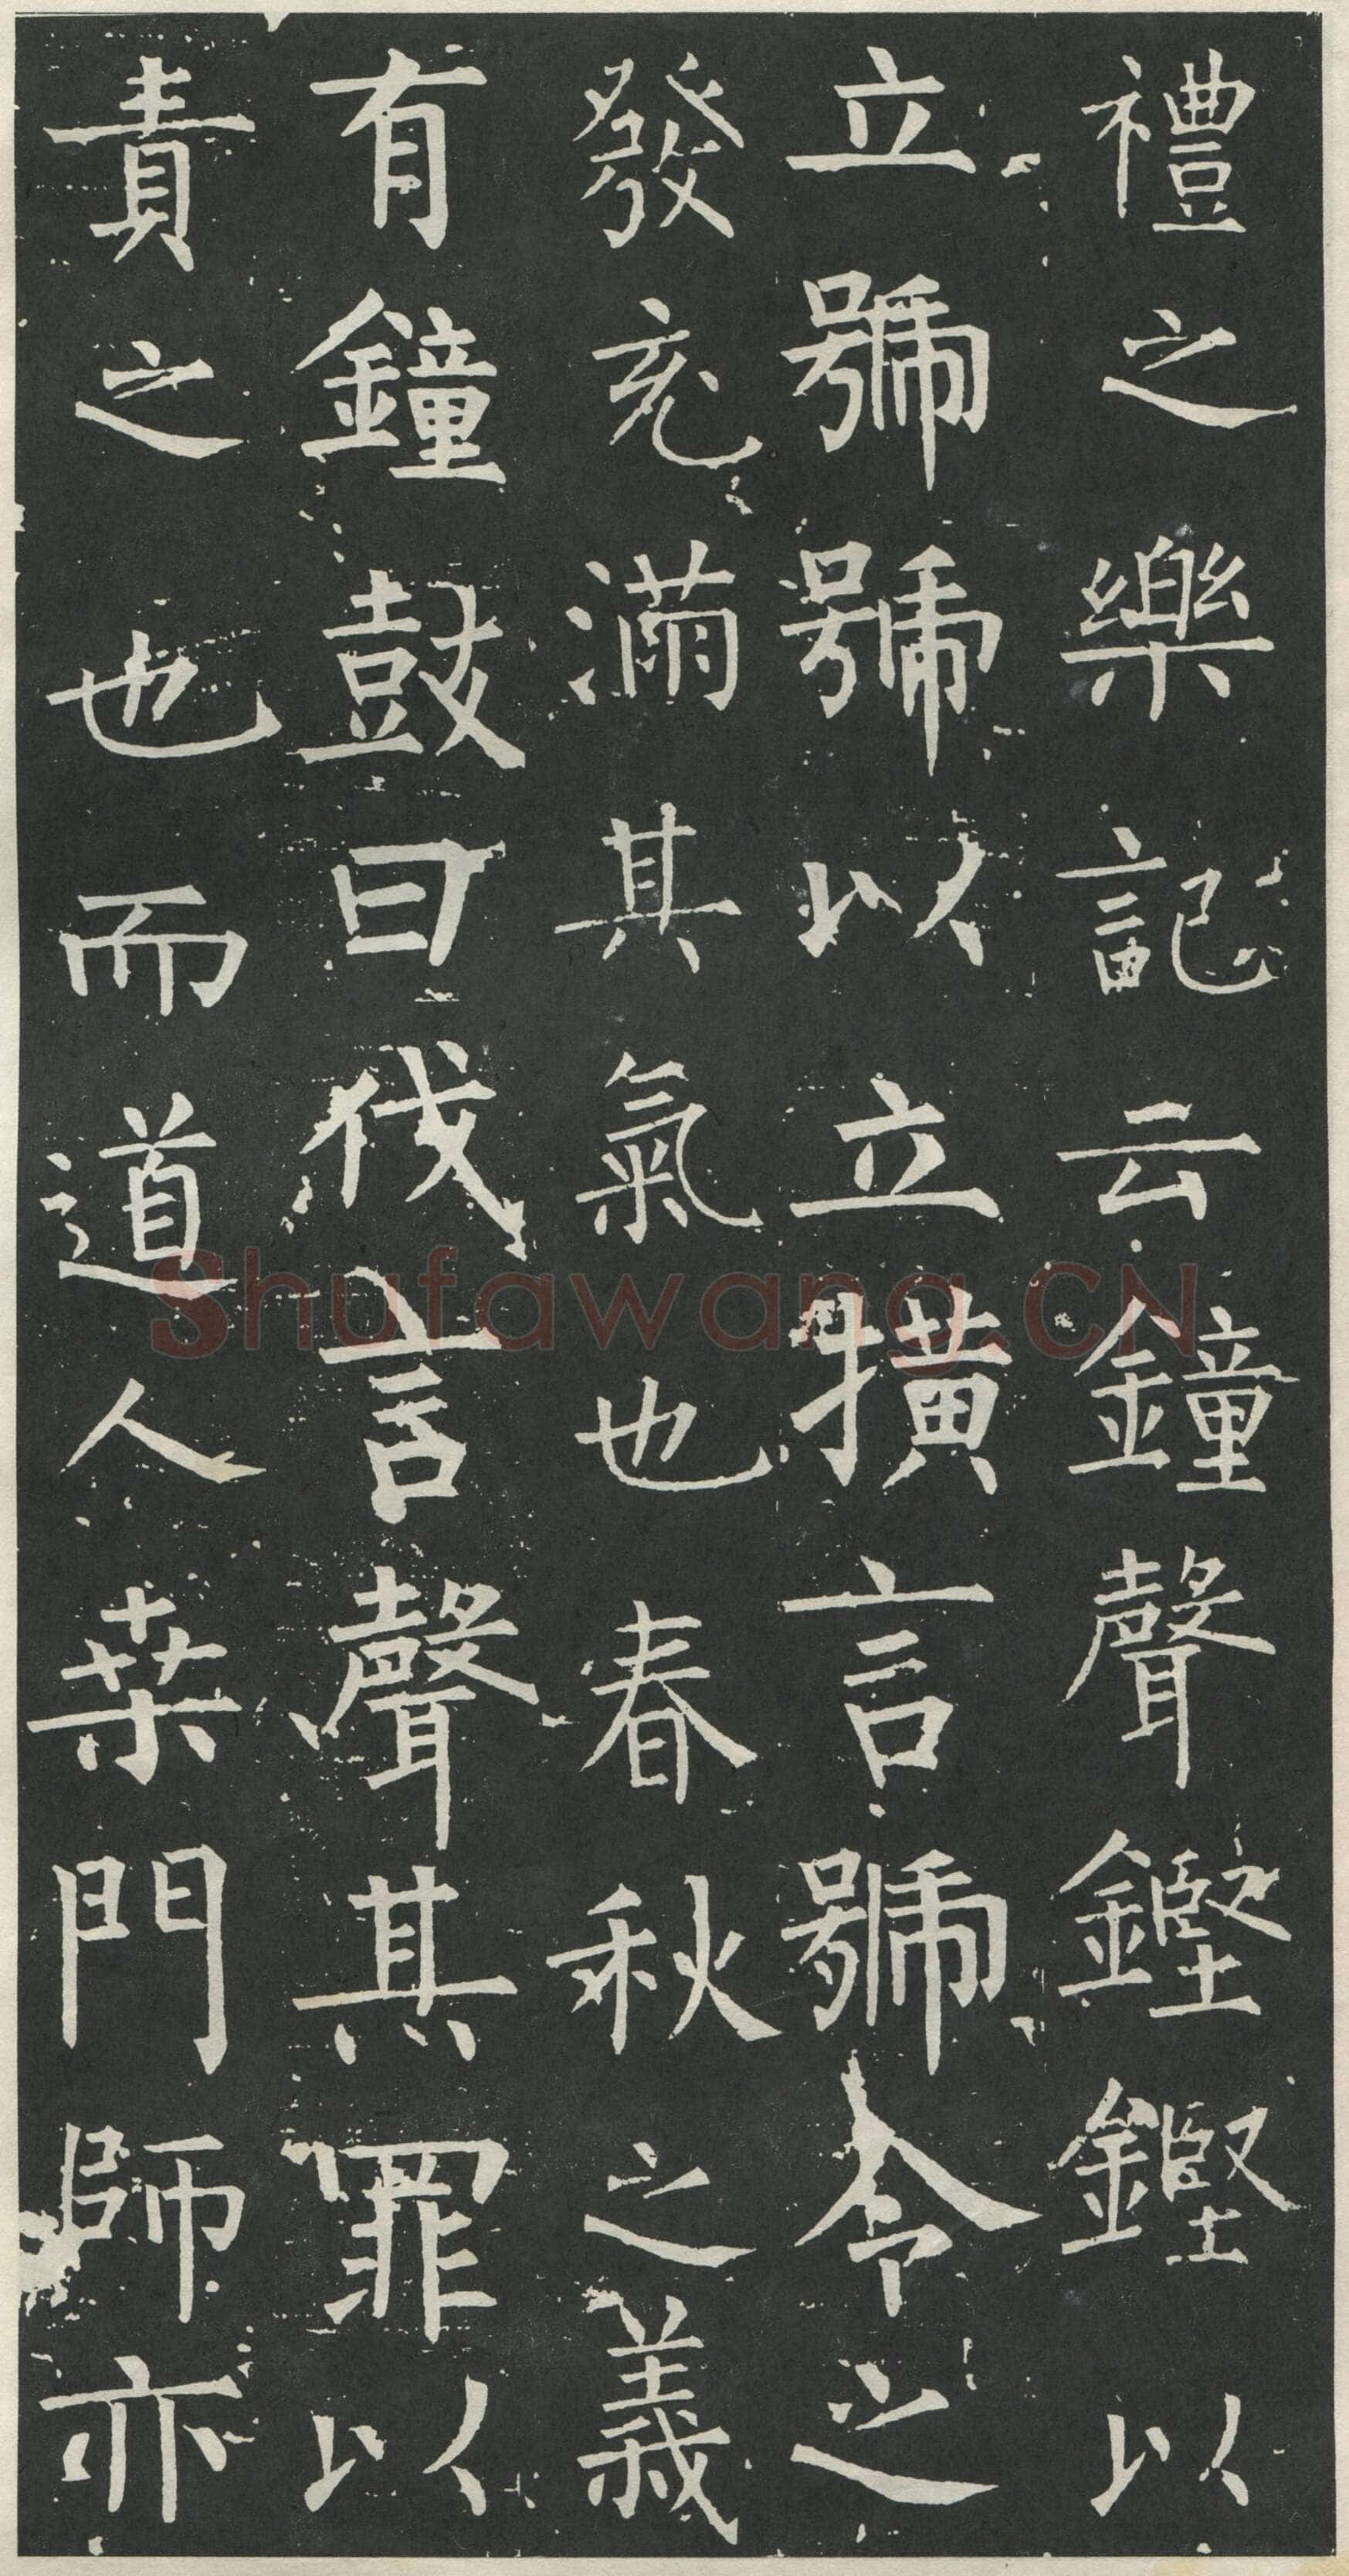 禮之樂記云鐘聲鏗鏗以
立號號以立撗言號令之
發充滿其氣也春秋之義
有鐘鼓曰伐言聲其罪以
責之也而道人桒門師亦
Shufawang.CN